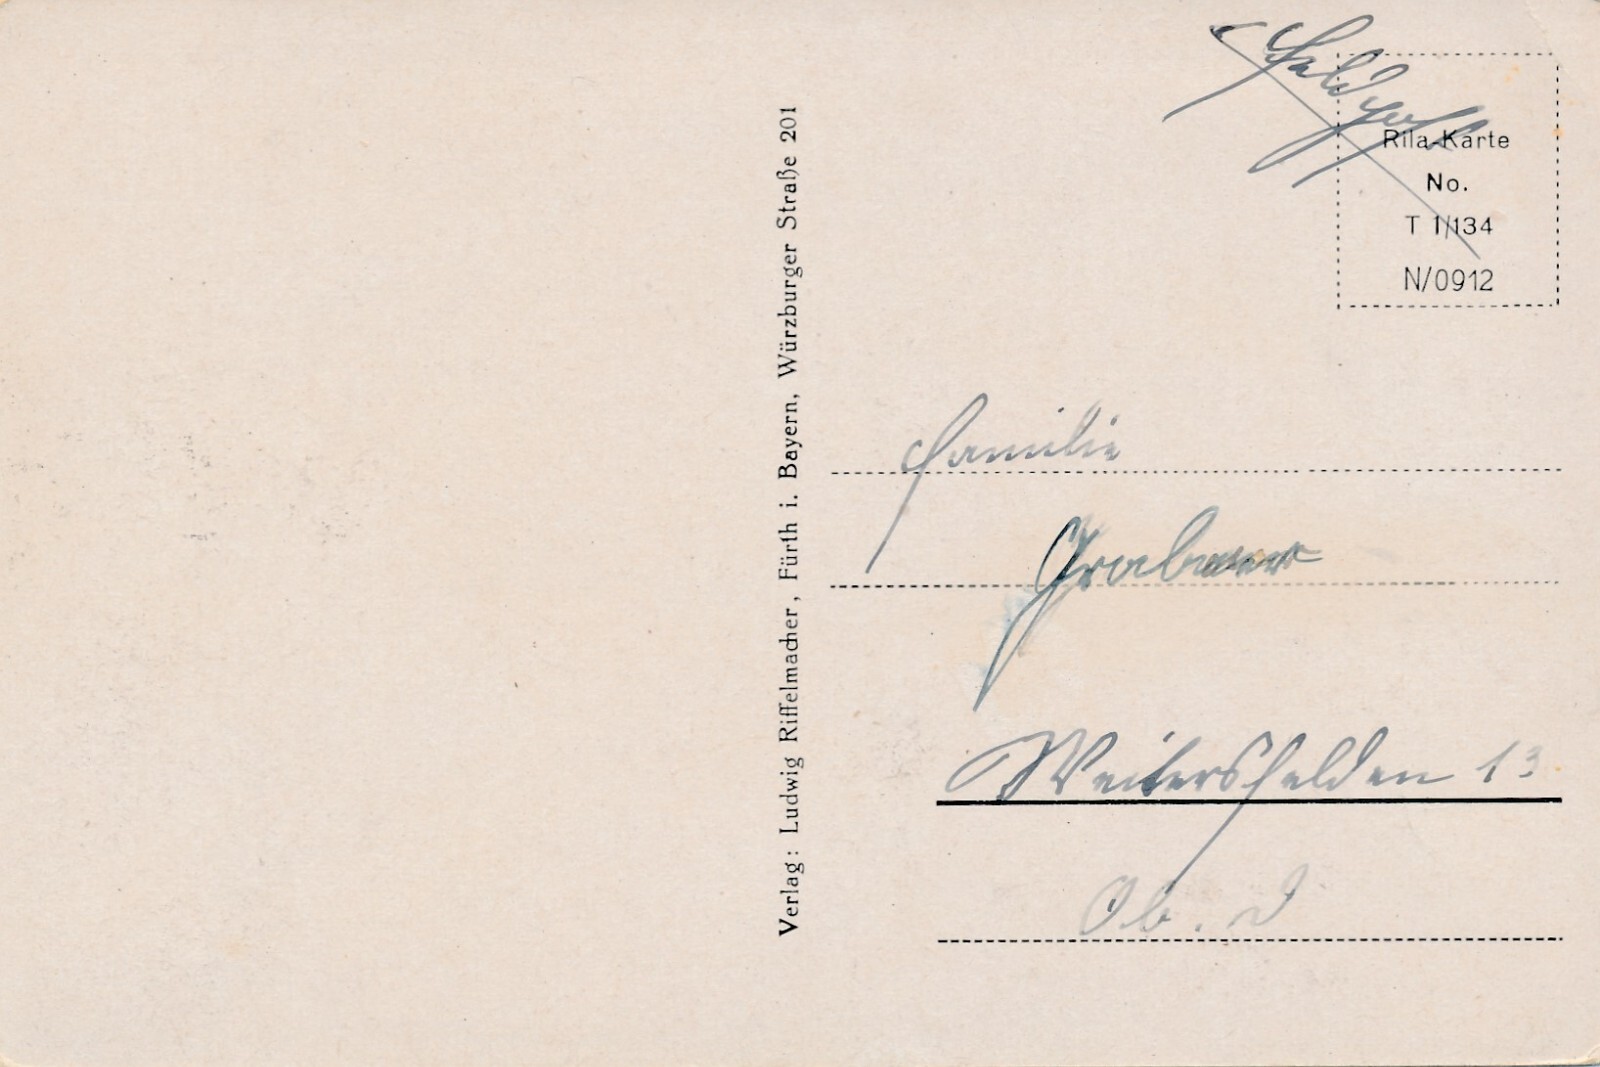 Feldpost
Rila-Karte
No.
T 1/134
N/0912
Verlag: Ludwig Riffelmacher, Fürth i. Bayern, Würzburger Straße 201
Familie
Weitersfelden 13
Ob. D